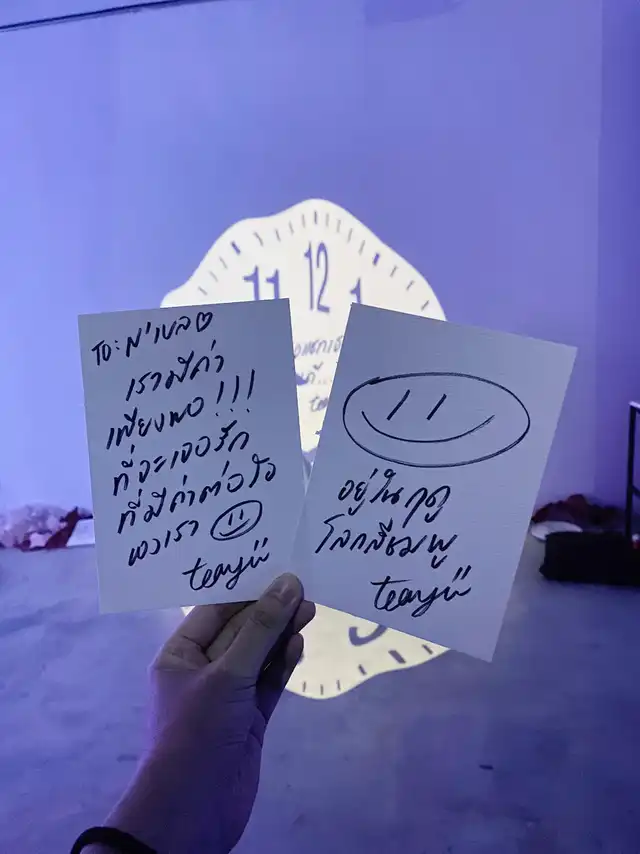 11 12 1
TO: น'เบล♡
เรามีค่า
เพียงพอ!!!
ที่จะเจอรัก
ที่มีค่าต่อใจ
ของเรา
teayii
อยู่ในฤดู
โลกสีชมพู
teayii